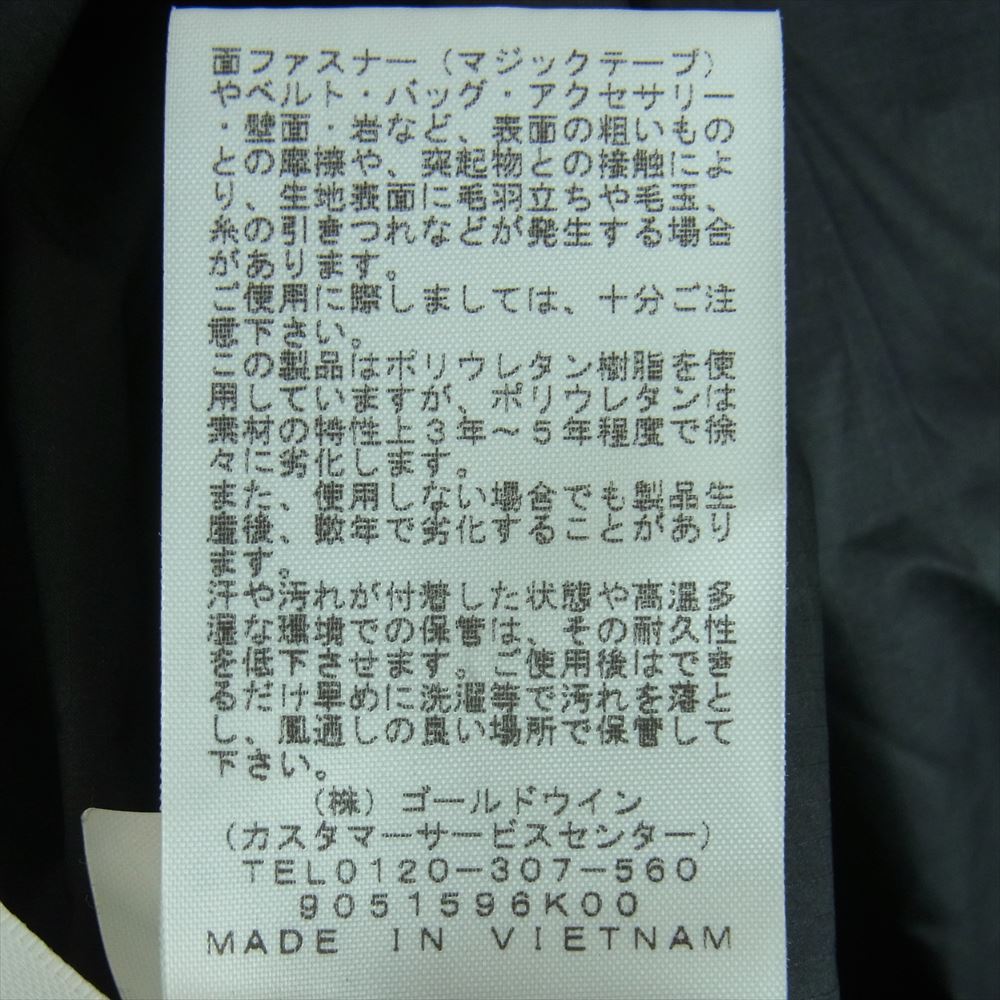 面ファスナー（マジックテープ）
やベルト・バッグ・アクセサリー
・壁面・岩など、表面の粗いもの
との摩擦や、突起物との接触によ
り、生地表面に毛羽立ちや毛玉、
糸の引きつれなどが発生する場合
があります。
ご使用に際しましては、十分ご注
意下さい。
この製品はポリウレタン樹脂を使
用していますが、ポリウレタンは
素材の特性上３年～５年程度で徐
々に劣化します。
また、使用しない場合でも製品生
産後、数年で劣化することがあり
ます。
汗や汚れが付着した状態や高温多
湿な環境での保管は、その耐久性
を低下させます。ご使用後はでき
るだけ早めに洗濯等で汚れを落と
し、風通しの良い場所で保管して
下さい。
（株）ゴールドウイン
（カスタマーサービスセンター）
TEL0120-307-560
9051596K00
MADE IN VIETNAM